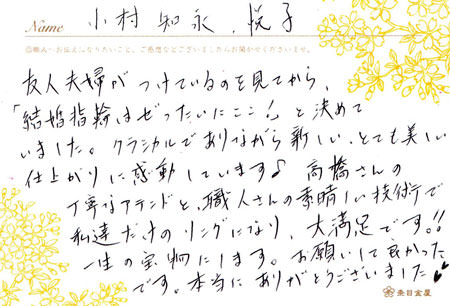 Name 小村 知永、悦子
◎職人へお伝えになりたいこと、ご感想などございましたらお聞かせくださいませ。
友人夫婦がつけているのを見てから、
「結婚指輪はぜったいにここ!」と決めて
いました。クラシカルでありながら新しい、とても美しい
仕上がりに感動しています♪ 高橋さんの
丁寧なアテンドと、職人さんの素晴しい技術で
私達だけのリングになり、大満足です!!
一生の宝物にします。お願いして良かった
です。本当にありがとうございました♥
杢目金屋